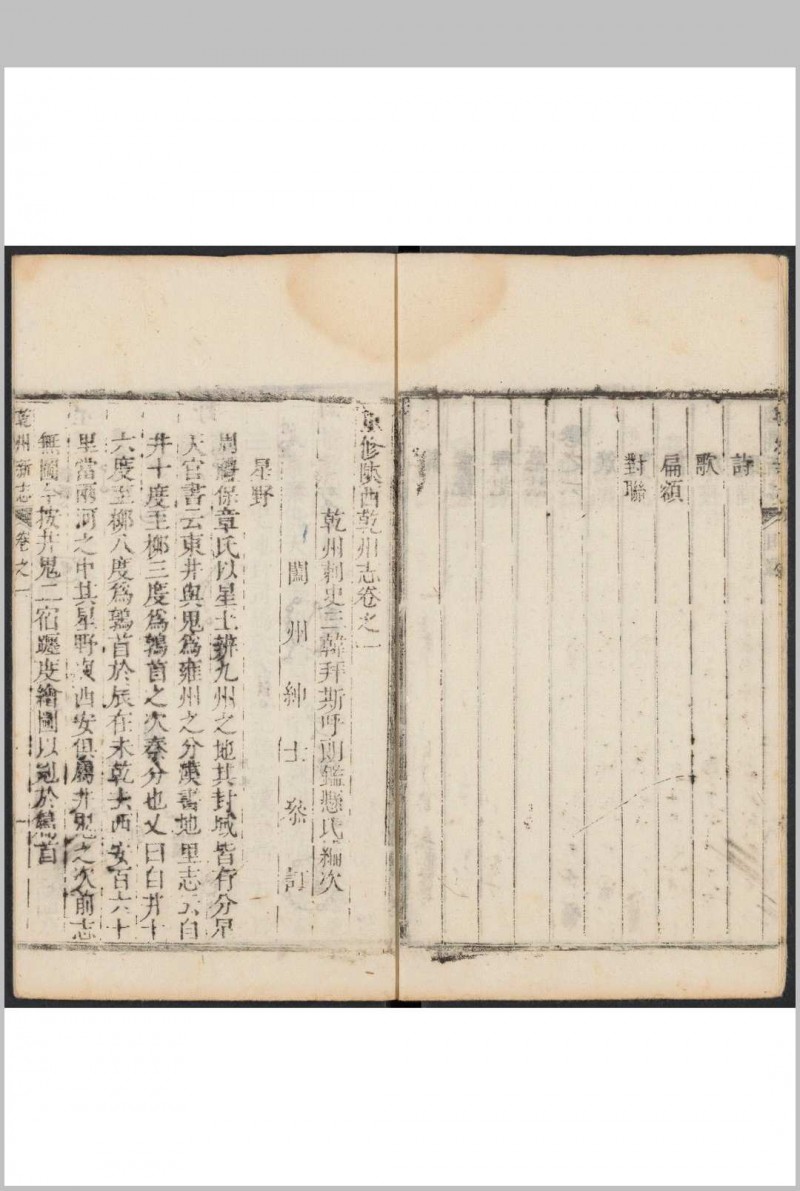 詩
歌
扁額
對聯
修陝西乾州志卷之一
乾州刺史三韓拜斯呼朗鑑懸氏編次
闔州紳士叅訂
星野
周禮保章氏以星土辨九州之地其封域皆有分星
天官書云東井與鬼為雍州之分漢書地里志云自
井十度至柳三度為鶉首之次秦分也又曰自井十
六度至柳八度為鶉首於辰在未乾去西安百六十
里當兩河之中其星野視西安俱屬井鬼之次前志
無圖今按井鬼二宿躔度繪圖以冠於篇首
乾州新志
卷之一
一